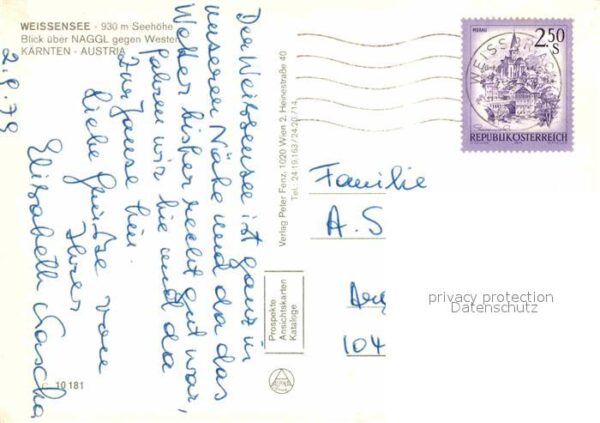 WEISSENSEE - 930 m Seehöhe
Blick über NAGGL gegen Westen
KÄRNTEN - AUSTRIA
2.8.78
Der Weissensee ist ganz in
unseren Nähe und da das
Wetter bisher recht gut war,
fahren wir hie und da
zur Jause hin
Liebe Grüsse von
Ihrer
Elisabeth
C 10 181
Verlag Peter Fenz, 1020 Wien 2, Heinestraße 40
Tel.: 24 19 163 / 24 20 714
Prospekte
Ansichtskarten
Kataloge
MURAU
2.50
S
WEISSENSEE
REPUBLIK ÖSTERREICH
Familie
A. S
104
privacy protection
Datenschutz